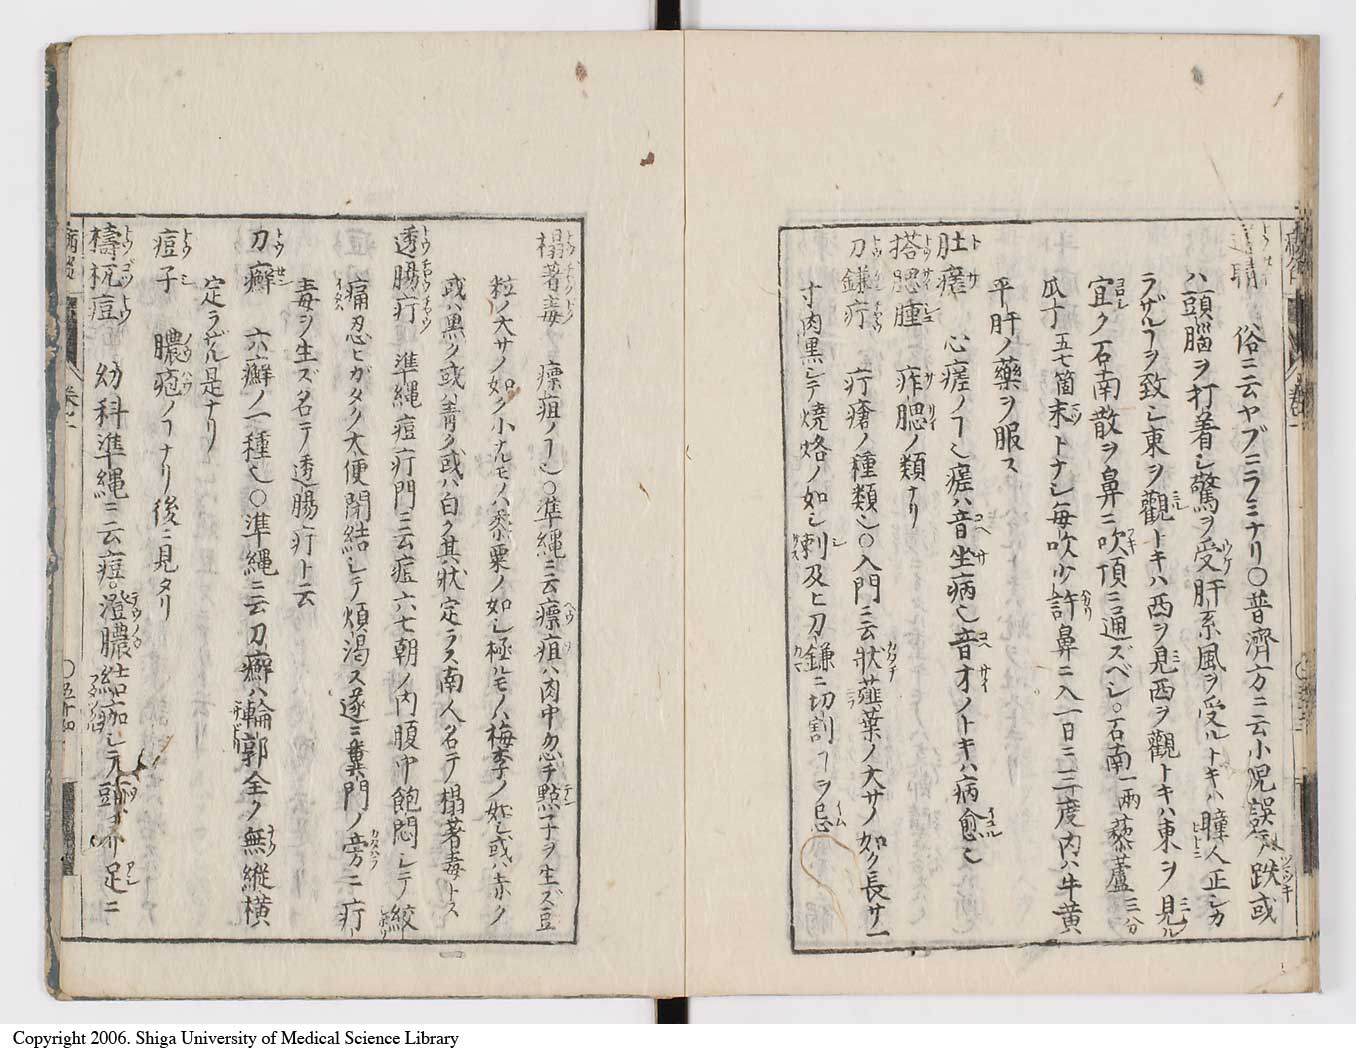 通睛 俗ニ云ヤブニラミナリ○普濟方ニ云小児誤テ跌或
ハ頭腦ヲ打着シ驚ヲ受肝系風ヲ受ルトキハ瞳人正シカ
ラザルヿヲ致シ東ヲ觀トキハ西ヲ見西ヲ觀トキハ東ヲ見ル
宜ク石南散ヲ鼻ニ吹頂ニ通ズベシ。石南一兩藜蘆三分
瓜丁五七箇末トナシ毎吹少許鼻ニ入一日ニ三度内ハ牛黄
平肝ノ藥ヲ服ス
肚瘥 心瘥ノヿ也瘥ハ音坐病也音才ノトキハ病愈也
搭腮腫 痄腮ノ類ナリ
刀鎌疔 疔瘡ノ種類也○入門ニ云状薤葉ノ大サノ如ク長サ一
寸肉黒シテ焼烙ノ如シ刺及ヒ刀鎌ニ切割ヿヲ忌
榻著毒 瘭疽ノヿ也○準縄ニ云瘭疽ハ肉中忽チ點子ヲ生ズ豆
粒ノ大サノ如ク小ナルモノハ黍粟ノ如シ極ルモノハ梅李ノ如シ或ハ赤ク
或ハ黒ク或ハ青ク或ハ白ク其状定ラス南人名テ榻著毒トス
透腸疔 準縄痘疔門ニ云痘六七朝ノ内腹中飽悶シテ絞
痛忍ヒガタク大便閉結シテ煩渇ス遂ニ糞門ノ旁ニ疔
毒ヲ生ズ名テ透腸疔ト云
刀癬 六癬ノ一種也○準縄ニ云刀癬ハ輪郭全ク無縦横
定ラザル是ナリ
痘子 膿疱ノヿナリ後ニ見タリ
檮杌痘 幼科準縄ニ云痘。澄膿結痂シテ頭ヨリ足ニ
巻一
○五十四
Copyright 2006. Shiga University of Medical Science Library